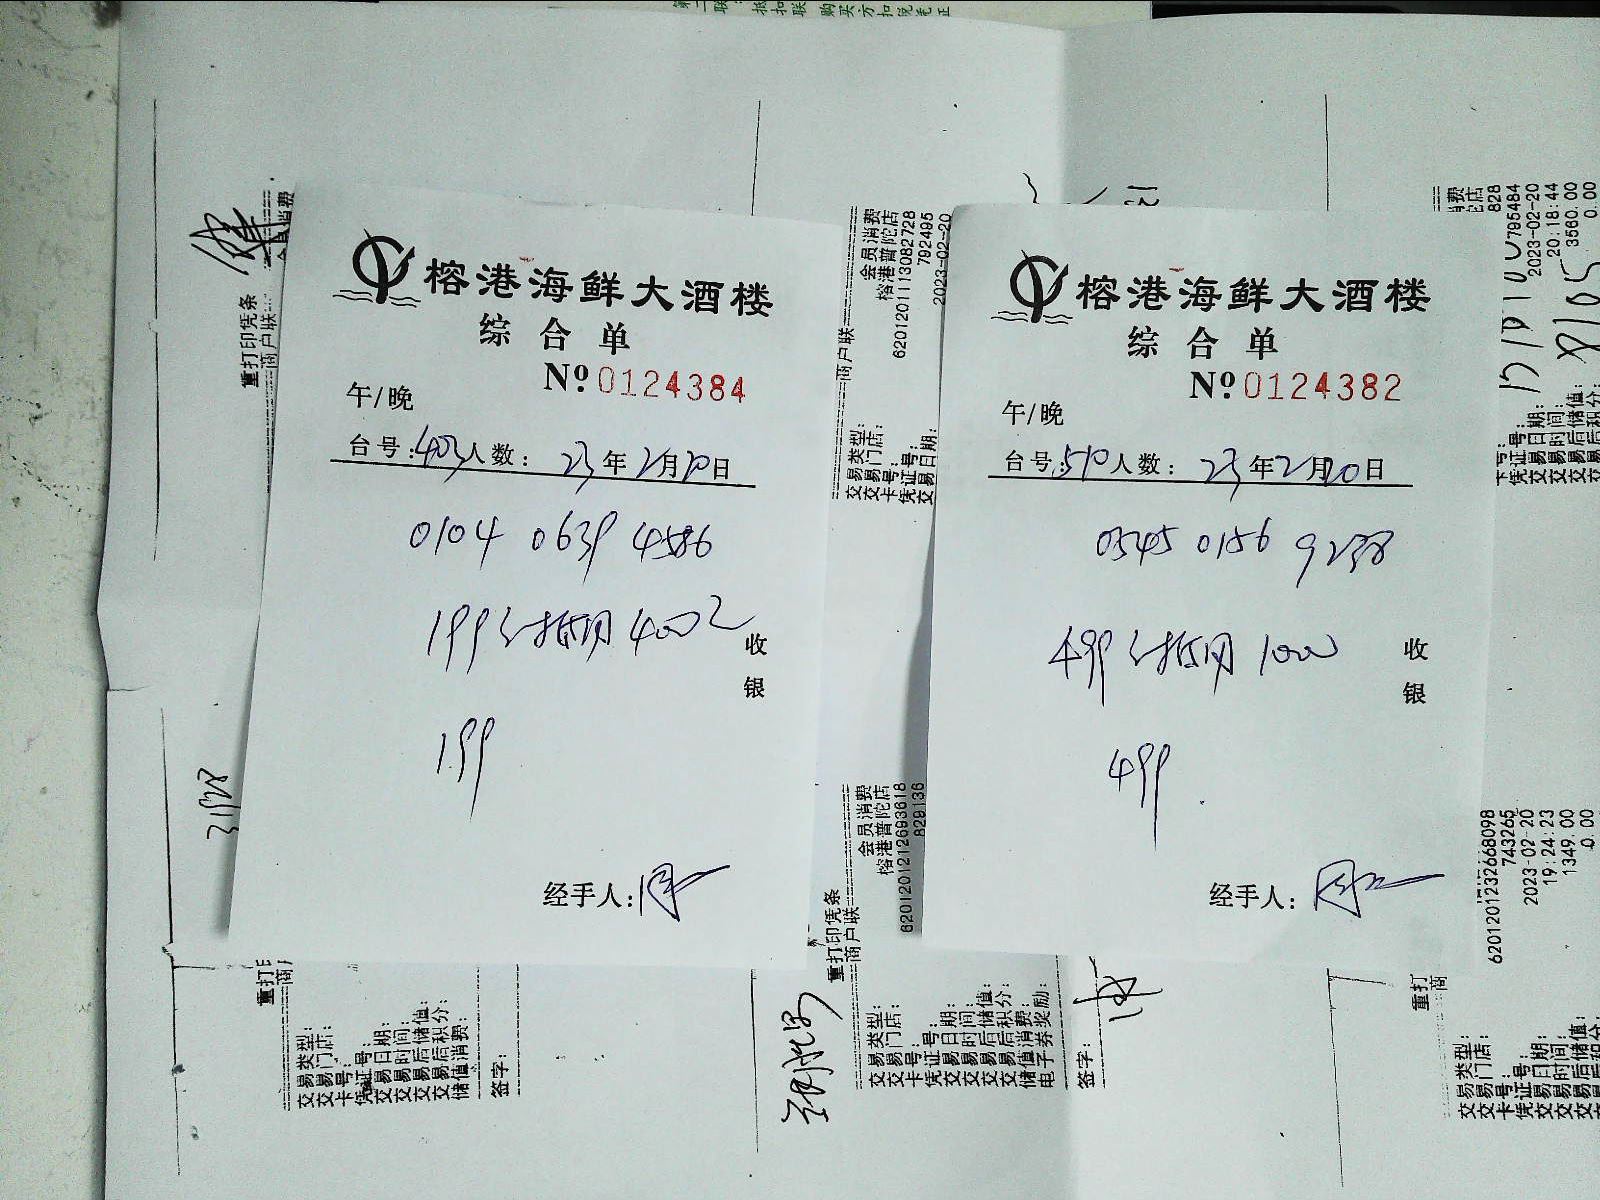 第二联:抵扣联 购买方扣税凭证
榕港海鲜大酒楼
综合单
No 0124384
午/晚
台号:403人数: 23年2月20日
0104 0639 4586
199
收
银
199
经手人:
榕港海鲜大酒楼
综合单
No 0124382
午/晚
台号:510人数: 23年2月20日
0545 0156 9238
499 抵用 100
收
银
499
经手人:
重打印凭条
商户联
会员消费
商户联
会员消费
榕港普陀店
6201201113082728
792495
2023-02-20
交易类型:
交易门店:
卡号:
凭证号:
交易日期:
828
795484
2023-02-20
20:18:44
3560.00
0.00
卡号:
凭证号:
交易日期:
交易时间:
交易后储值:
交易后积分:
8105
3128
重打印
商
交易类型:
交易门店:
卡号:
凭证号:
交易日期:
交易时间:
交易后储值:
交易后积分:
储值消费:
签字:
重打印凭条
商户联
会员消费
榕港普陀店
6201201212693618
829136
交易类型:
交易门店:
卡号:
凭证号:
交易日期:
交易时间:
交易后储值:
交易后积分:
储值消费:
电子券奖励:
签字:
重打
商
6201201232668098
743265
2023-02-20
19:24:23
1349.00
0.00
交易类型:
交易门店:
卡号:
凭证号:
交易日期:
交易时间:
交易后储值:
交易后积分: